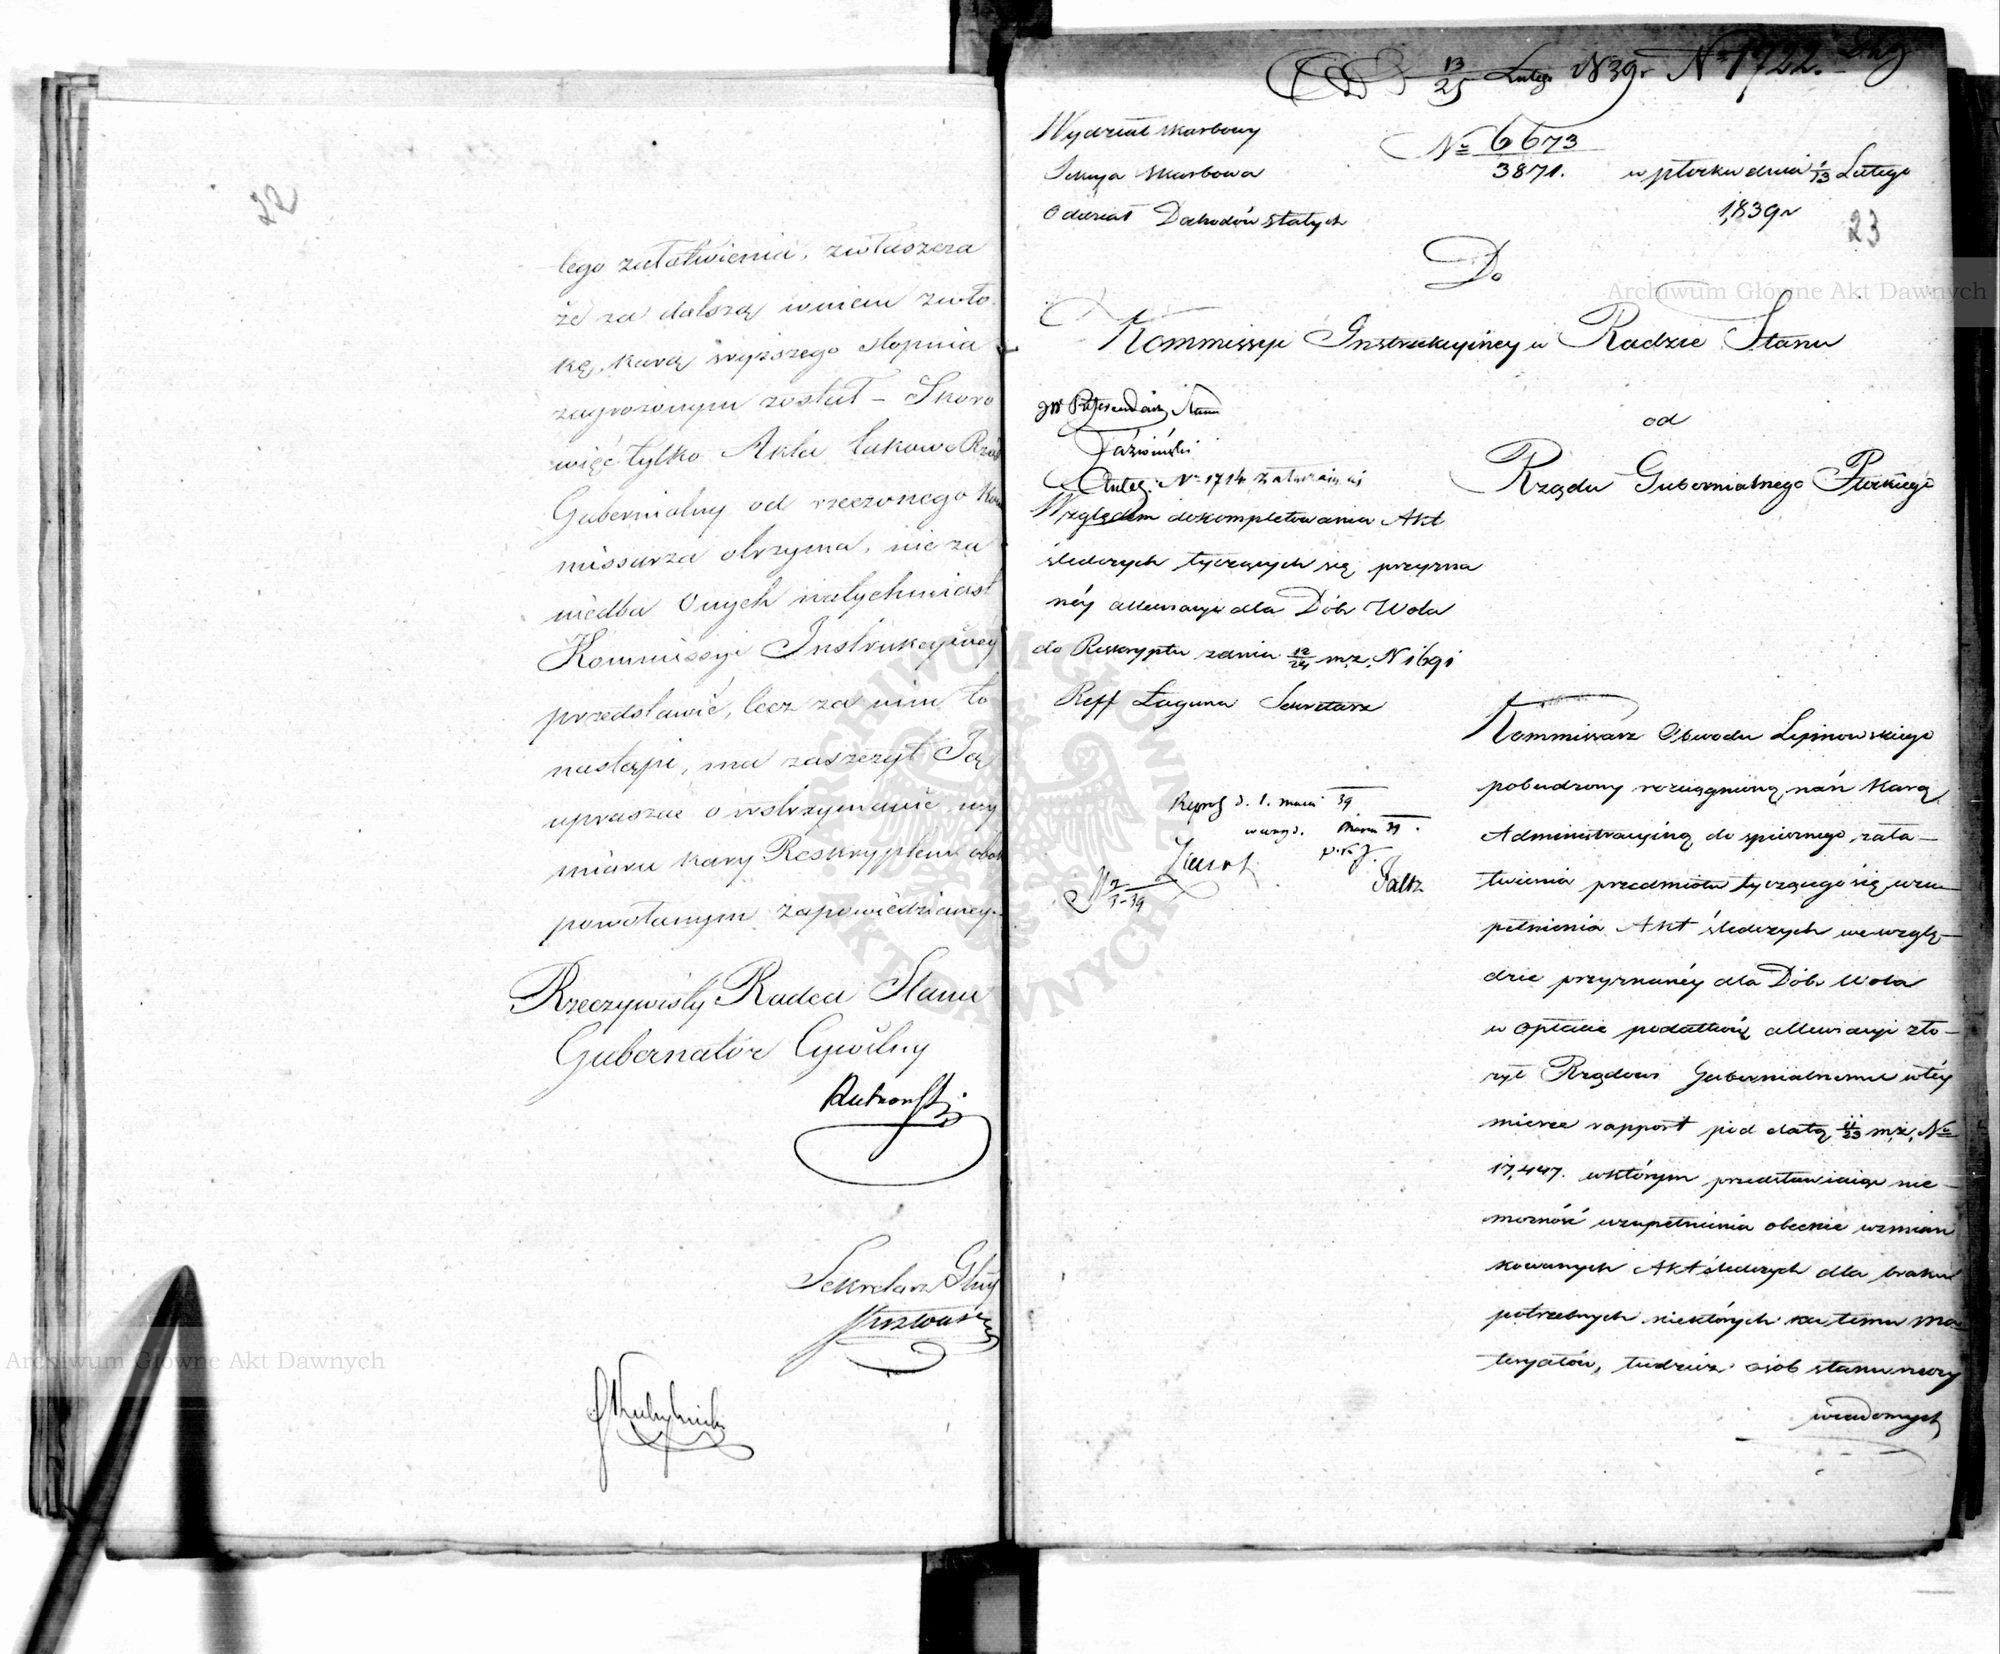 22
tego załatwienia, zwłaszcza
że za dalszą w niem zwło-
kę, karą wyższego stopnia
zagrożonym został – Skoro
więc tylko Akta takowe Rząd
Gubernialny od rzeczonego Kom
missarza otrzyma, nieza
niedba Onych natychmiast
Kommissyi Instrukcyiney
przedstawić, lecz za nim to
nastąpi, ma zaszczyt Ją
upraszać o wstrzymanie wy
miaru kary Reskryptem obok
powołanym zapowiedzianey.
Rzeczywisty Radca Stanu
Gubernator Cywilny
Sekretarz Głny
13/25 Lutego 1839 r N° 1722.
Wydział Skarbowy
Sekcya Skarbowa
Oddział Dochodów Stałych
N° 6673/3871.
w Płocku dnia 1/13 Lutego
1839 r
23
Do
Kommissyi Instrukcyiney w Radzie Stanu
od
Rządu Gubernialnego Płockiego
JW Referendarz Stanu
N° 1714 załatwia się
Względem dokompletowania Akt
śledczych tyczących się przyzna
néy allewiacyi dla Dóbr Wola
do Reskryptu z dnia 12/24 m.z. N 1691
Reff Łaguna Sekretarz
Kommissarz Obwodu Lipnowskiego
pobudzony rozciągnioną nań karą
Administracyiną do spiesznego zała-
twienia przedmiotu tyczącego się uzu-
pełnienia Akt śledczych we wzglę-
dzie przyznanéy dla Dóbr Wola
w opłacie podatków allewiacyi zło-
żył Rządowi Gubernialnemu w téy
mierze rapport pod datą 11/23 m.z. N°
17,447. w którym przedstawiaiąc nie-
możność uzupełnienia obecnie wzmian
kowanych Akt śledczych dla braku
potrzebnych niektórych ku temu ma-
teryałów, tudzież osób stanu rzeczy
wiadomych
Archiwum Główne Akt Dawnych
Archiwum Główne Akt Dawnych
ARCHIWUM GŁÓWNE AKT DAWNYCH